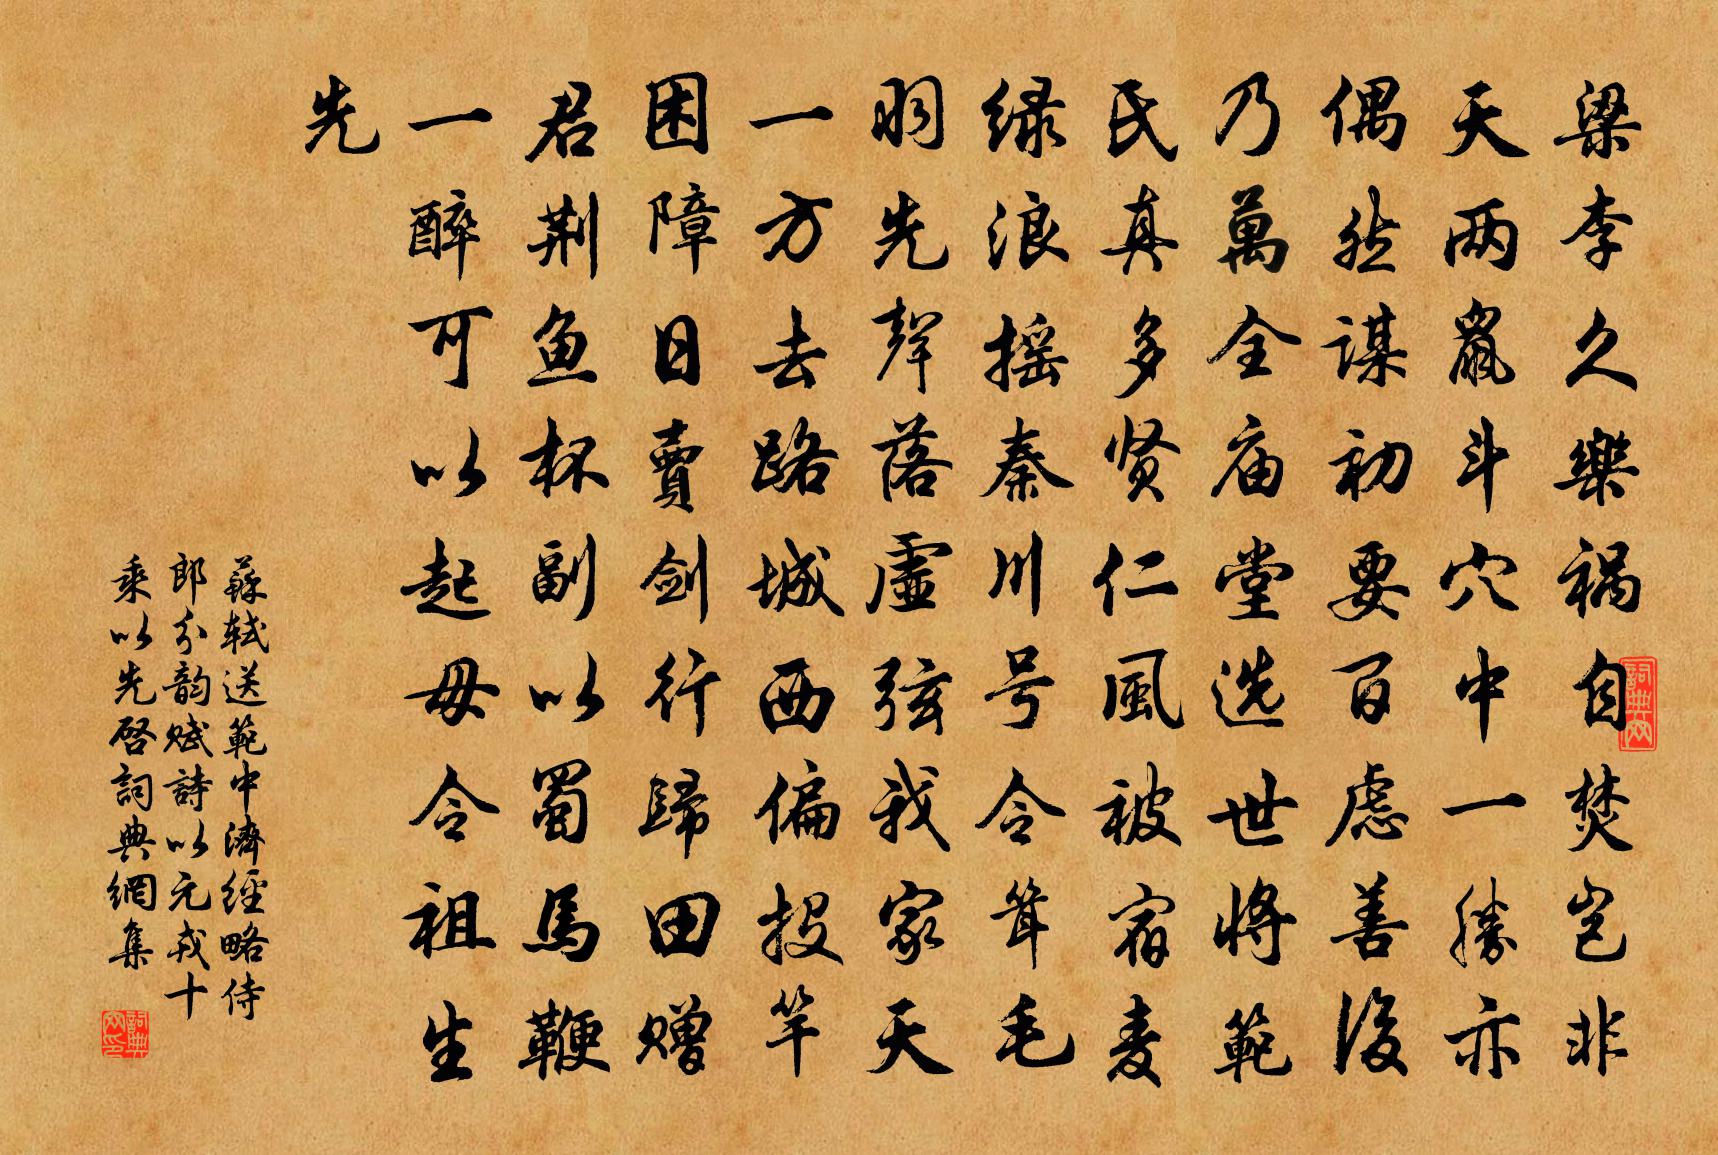 梁李久樂禍自焚豈非
天两鼠斗穴中一勝亦
偶然谋初要百慮善後
乃萬全庙堂选世将範
氏真多贤仁風被宿麦
绿浪摇秦川号令耸毛
羽先聲落虚弦我家天
一方去路城西偏投竿
困障日賣剑行歸田赠
君荆鱼杯副以蜀馬鞭
一醉可以起毋令祖生
先
蘇轼送範中濟經略侍
郎分韵赋詩以元戎十
乘以先啓詞典網集
詞典网
詞典网印